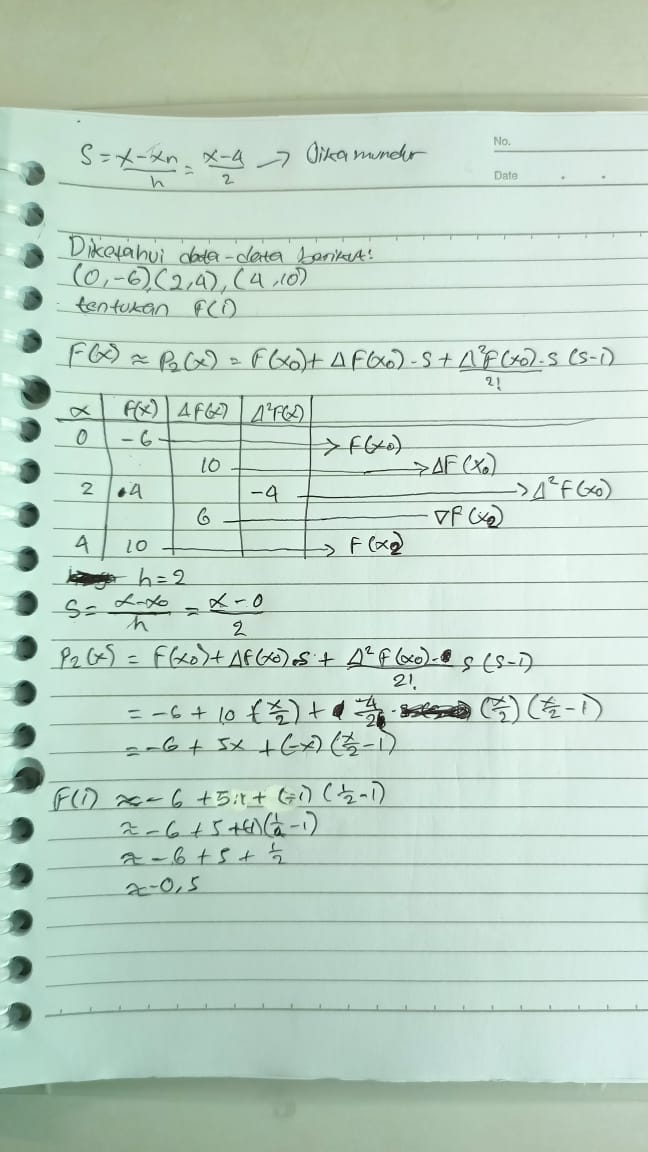 S = x-xn/h = x-4/2 → Jika mundur
No.
Date
Diketahui data-data berikut:
(0,-6),(2,4),(4,10)
tentukan F(1)
F(x) ≈ P₂(x) = F(x₀) + ΔF(x₀)·S + Δ²F(x₀)/2!·S (S-1)
x | F(x) | ΔF(x) | Δ²F(x)
0 -6 → F(x₀)
10 → ΔF(x₀)
2 4 -4 → Δ²F(x₀)
6 ∇F(x₂)
4 10 → F(x₂)
h = 2
S = x-x₀/h = x-0/2
P₂(x) = F(x₀) + ΔF(x₀).S + Δ²F(x₀)/2!· S (S-1)
= -6 + 10 (x/2) + -4/2 · (x/2) (x/2 - 1)
= -6 + 5x + (-x) (x/2 - 1)
F(1) ≈ -6 + 5.1 + (-1) (1/2 - 1)
≈ -6 + 5 + (-1)(1/2 - 1)
≈ -6 + 5 + 1/2
≈ -0,5